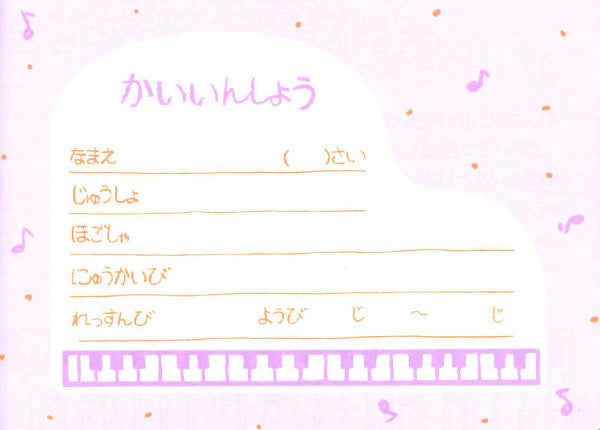 かいいんしょう
なまえ (  )さい
じゅうしょ
ほごしゃ
にゅうかいび
れっすんび ようび じ ～ じ